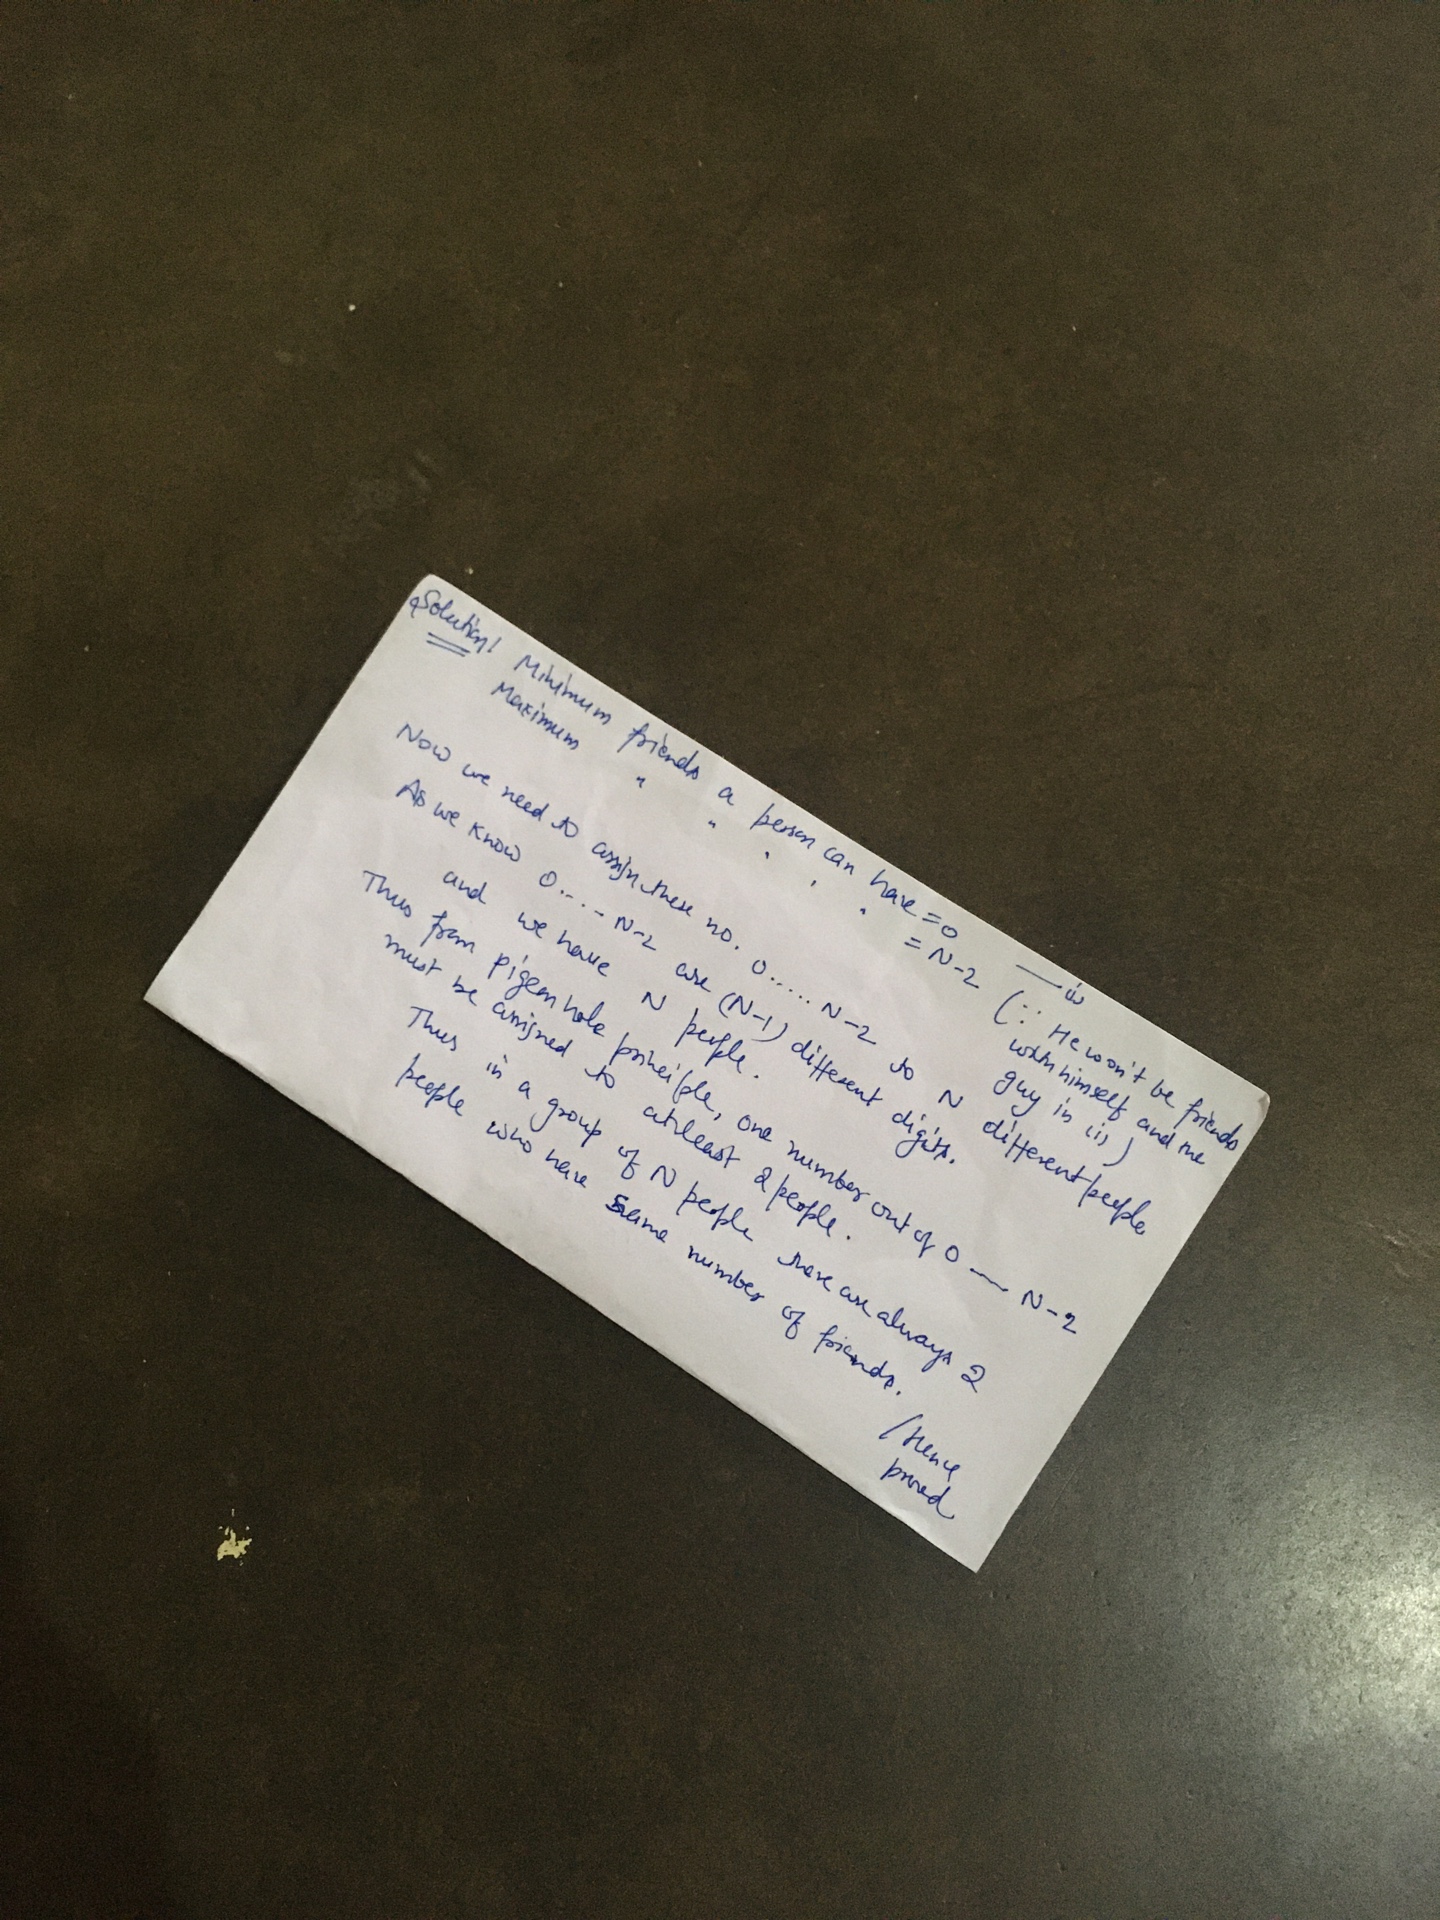 Solution! Minimum friends a person can have = 0 —(i)
Maximum " " " " " = N-2 (∵ He won't be friends
with himself and the
guy in (i))
Now we need to assign these no. 0.....N-2 to N different people
As we know 0....N-2 are (N-1) different digits.
and we have N people.
Thus from pigeon hole principle, one number out of 0 — N-2
must be assigned to atleast 2 people.
Thus in a group of N people there are always 2
people who have same number of friends.
Hence
proved